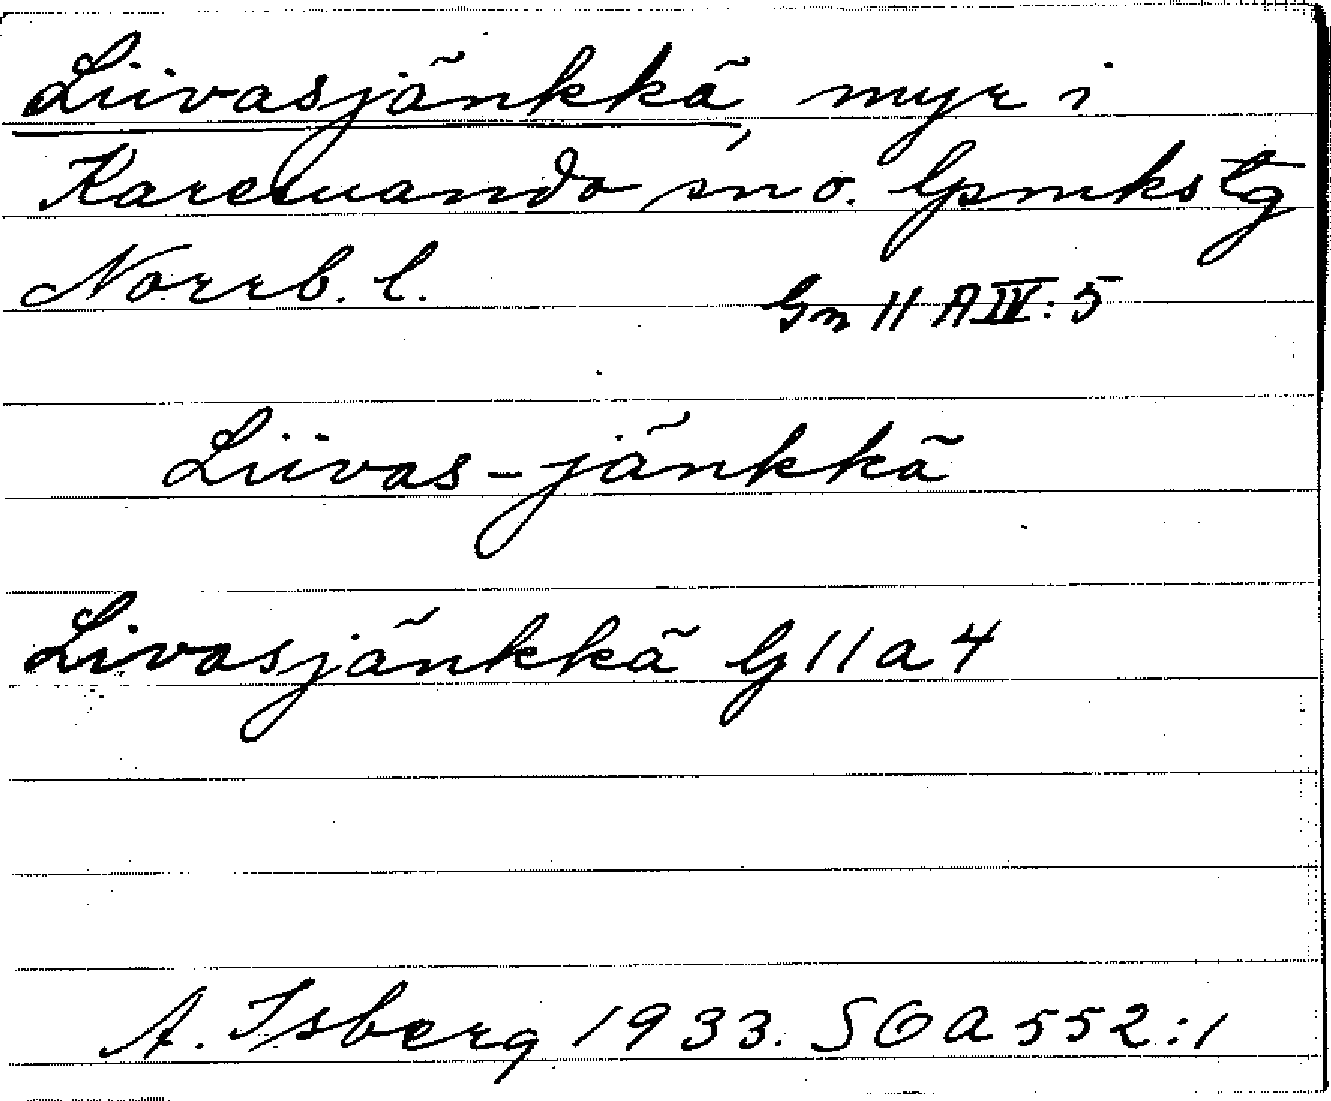 Liivasjänkkä, myr i
Karesuando sn o. lpmkstg
Norrb. l.
Gn 11 A IV: 5
Liivas-jänkkä
Livasjänkkä G 11 a 4
A. Isberg 1933. SOA 552:1